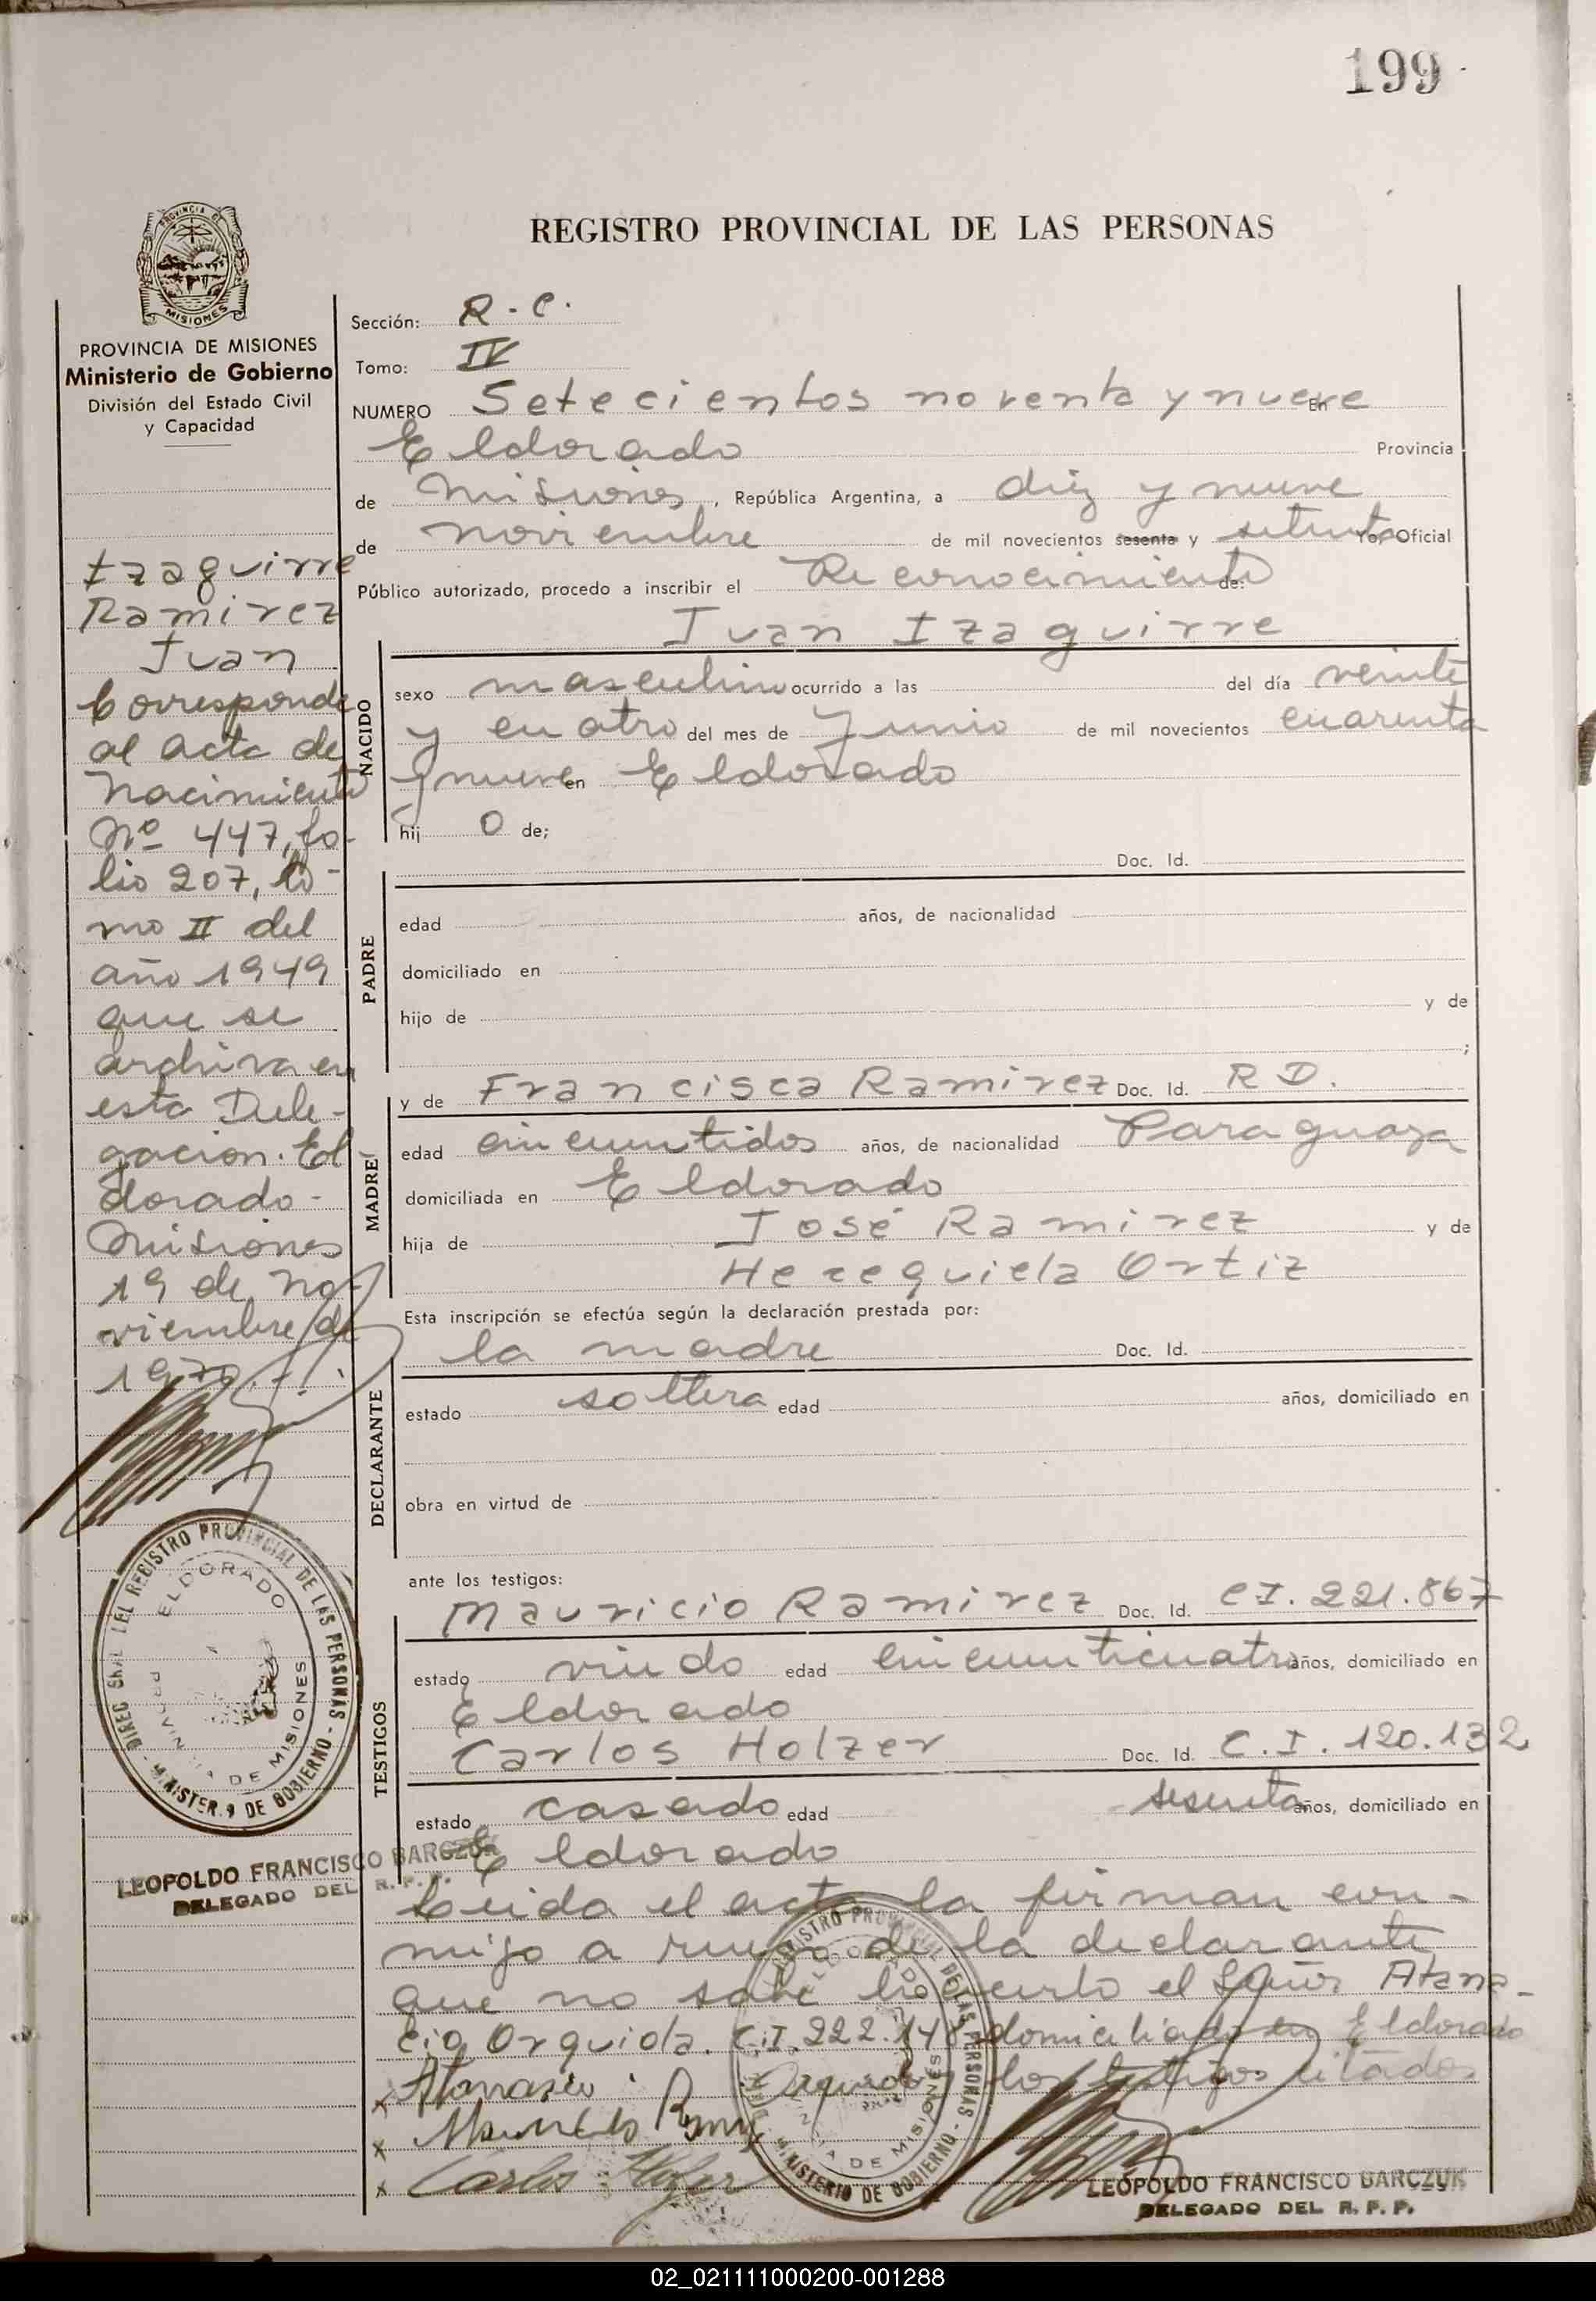 199
REGISTRO PROVINCIAL DE LAS PERSONAS
PROVINCIA DE MISIONES
Ministerio de Gobierno
División del Estado Civil
y Capacidad
Izaguirre
Ramirez
Juan
Corresponde
al acta de
Nacimiento
Nº 447, fo-
lio 207, to-
mo II del
año 1949
que se
archiva en
esta Dele-
gacion. El
dorado -
Misiones
19 de no
viembre de
1970.-
DIREC GRAL DEL REGISTRO PROVINCIAL DE LAS PERSONAS - MINISTERIO DE GOBIERNO -
ELDORADO
PROVINCIA DE MISIONES
LEOPOLDO FRANCISCO GARCZUK
DELEGADO DEL R. P. P.
Sección: R-C.
Tomo: IV
NUMERO Setecientos noventa y nueve En
Eldorado Provincia
de Misiones, República Argentina, a diez y nueve
de noviembre de mil novecientos sesenta y setenta Yo, Oficial
Público autorizado, procedo a inscribir el Reconocimiento de:
Juan Izaguirre
NACIDO
sexo masculino ocurrido a las del día veinte
y cuatro del mes de Junio de mil novecientos cuarenta
y nueve en Eldorado
hij o de;
Doc. Id.
PADRE
edad años, de nacionalidad
domiciliado en
hijo de y de
;
y de Francisca Ramirez Doc. Id. R D.
MADRE
edad cincuentidos años, de nacionalidad Paraguaya
domiciliada en Eldorado
hija de José Ramirez y de
Herequiela Ortiz
Esta inscripción se efectúa según la declaración prestada por:
la madre Doc. Id.
DECLARANTE
estado soltera edad años, domiciliado en
obra en virtud de
ante los testigos:
Mauricio Ramirez Doc. Id. CI. 221.867
TESTIGOS
estado viudo edad cincuenticuatro años, domiciliado en
Eldorado
Carlos Holzer Doc. Id. C.I. 120.132
estado casado edad sesenta años, domiciliado en
Eldorado
Leida el acta la firman con-
migo a ruego de la declarante
que no sabe hacerlo el Señor Atana-
cio Orquida. C.I. 222.148 domiciliado en Eldorado
y los testigos citados
x Atanasio Orquida
x Mauricio Rami
x Carlos
REGISTRO PROVINCIAL DE LAS PERSONAS - MINISTERIO DE GOBIERNO -
ELDORADO
PROVINCIA DE MISIONES
LEOPOLDO FRANCISCO GARCZUK
DELEGADO DEL R. P. P.
02_021111000200-001288